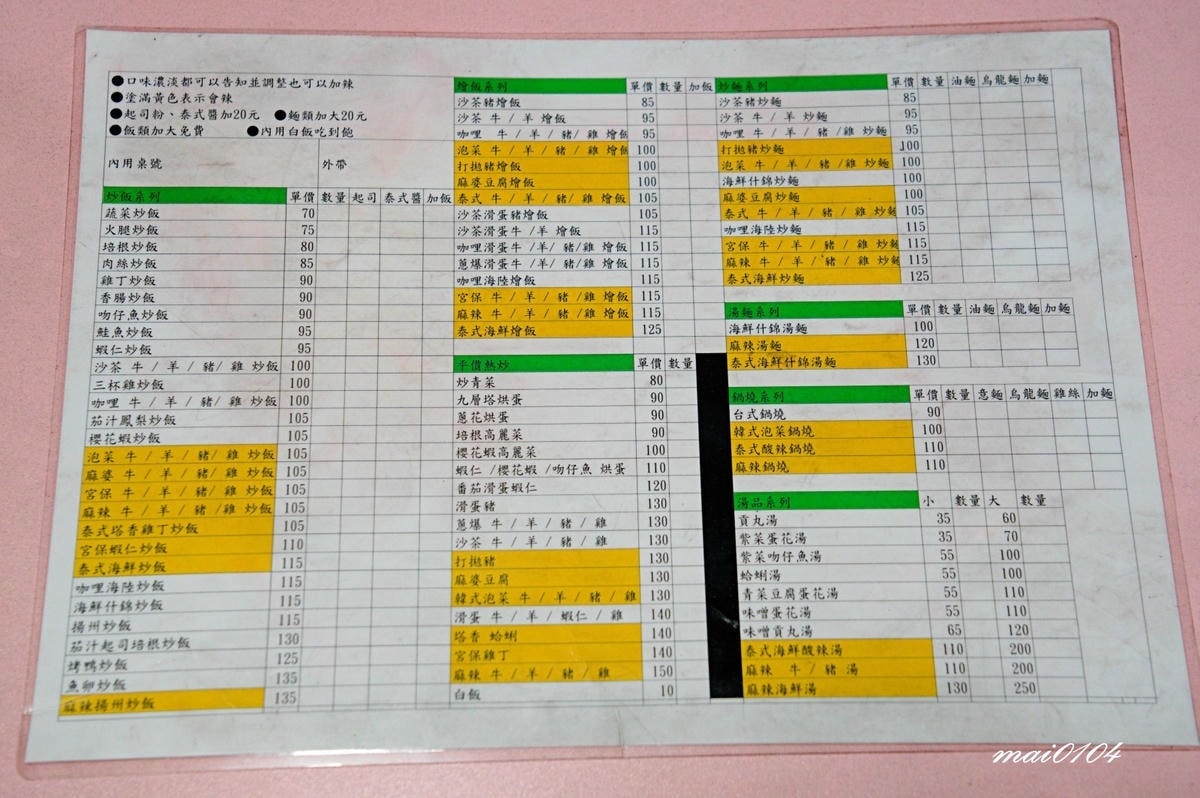 ●口味濃淡都可以告知並調整也可以加辣
●塗滿黃色表示會辣
●起司粉、泰式醬加20元 ●麵類加大20元
●飯類加大免費 ●內用白飯吃到飽
內用桌號 外帶
炒飯系列 單價 數量 起司 泰式醬 加飯
蔬菜炒飯 70
火腿炒飯 75
培根炒飯 80
肉絲炒飯 85
雞丁炒飯 90
香腸炒飯 90
吻仔魚炒飯 90
鮭魚炒飯 95
蝦仁炒飯 95
沙茶 牛 / 羊 / 豬/ 雞 炒飯 100
三杯雞炒飯 100
咖哩 牛 / 羊 / 豬/ 雞 炒飯 100
茄汁鳳梨炒飯 105
櫻花蝦炒飯 105
泡菜 牛 / 羊 / 豬/ 雞 炒飯 105
麻婆 牛 / 羊 / 豬/ 雞 炒飯 105
宮保 牛 / 羊 / 豬/ 雞 炒飯 105
麻辣 牛 / 羊 / 豬/ 雞 炒飯 105
泰式塔香雞丁炒飯 105
宮保蝦仁炒飯 110
泰式海鮮炒飯 115
咖哩海陸炒飯 115
海鮮什錦炒飯 115
揚州炒飯 115
茄汁起司培根炒飯 130
烤鴨炒飯 125
魚卵炒飯 135
麻辣揚州炒飯 135
燴飯系列 單價 數量 加飯
沙茶豬燴飯 85
沙茶 牛 / 羊 燴飯 95
咖哩 牛 / 羊 / 豬/ 雞 燴飯 95
泡菜 牛 / 羊 / 豬 / 雞 燴飯 100
打拋豬燴飯 100
麻婆豆腐燴飯 100
泰式 牛 / 羊 / 豬 / 雞 燴飯 105
沙茶滑蛋豬燴飯 105
沙茶滑蛋牛 /羊 燴飯 115
咖哩滑蛋牛 /羊/ 豬/雞 燴飯 115
蔥爆滑蛋牛 /羊/ 豬/雞 燴飯 115
咖哩海陸燴飯 115
宮保 牛 / 羊 / 豬 /雞 燴飯 115
麻辣 牛 / 羊 / 豬 /雞 燴飯 115
泰式海鮮燴飯 125
平價熱炒 單價 數量
炒青菜 80
九層塔烘蛋 90
蔥花烘蛋 90
培根高麗菜 90
櫻花蝦高麗菜 100
蝦仁 /櫻花蝦 /吻仔魚 烘蛋 110
番茄滑蛋蝦仁 120
滑蛋豬 130
蔥爆 牛 / 羊 / 豬 / 雞 130
沙茶 牛 / 羊 / 豬 / 雞 130
打拋豬 130
麻婆豆腐 130
韓式泡菜 牛 / 羊 / 豬 / 雞 130
滑蛋 牛 / 羊 /蝦仁 / 雞 140
塔香 蛤蜊 140
宮保雞丁 140
麻辣 牛 / 羊 / 豬 / 雞 150
白飯 10
炒麵系列 單價 數量 油麵 烏龍麵 加麵
沙茶豬炒麵 85
沙茶 牛 / 羊 炒麵 95
咖哩 牛 / 羊 / 豬/ 雞 炒麵 95
打拋豬炒麵 100
泡菜 牛 / 羊 / 豬/ 雞 炒麵 100
海鮮什錦炒麵 100
麻婆豆腐炒麵 100
泰式 牛 / 羊 / 豬/ 雞 炒麵 105
咖哩海陸炒麵 115
宮保 牛 / 羊 / 豬/ 雞 炒麵 115
麻辣 牛 / 羊 / 豬/ 雞 炒麵 115
泰式海鮮炒麵 125
湯麵系列 單價 數量 油麵 烏龍麵 加麵
海鮮什錦湯麵 100
麻辣湯麵 120
泰式海鮮什錦湯麵 130
鍋燒系列 單價 數量 意麵 烏龍麵 雞絲 加麵
台式鍋燒 90
韓式泡菜鍋燒 100
泰式酸辣鍋燒 110
麻辣鍋燒 110
湯品系列 小 數量 大 數量
貢丸湯 35 60
紫菜蛋花湯 35 70
紫菜吻仔魚湯 55 100
蛤蜊湯 55 100
青菜豆腐蛋花湯 55 110
味噌蛋花湯 55 110
味噌貢丸湯 65 120
泰式海鮮酸辣湯 110 200
麻辣 牛 / 豬 湯 110 200
麻辣海鮮湯 130 250
mai0104